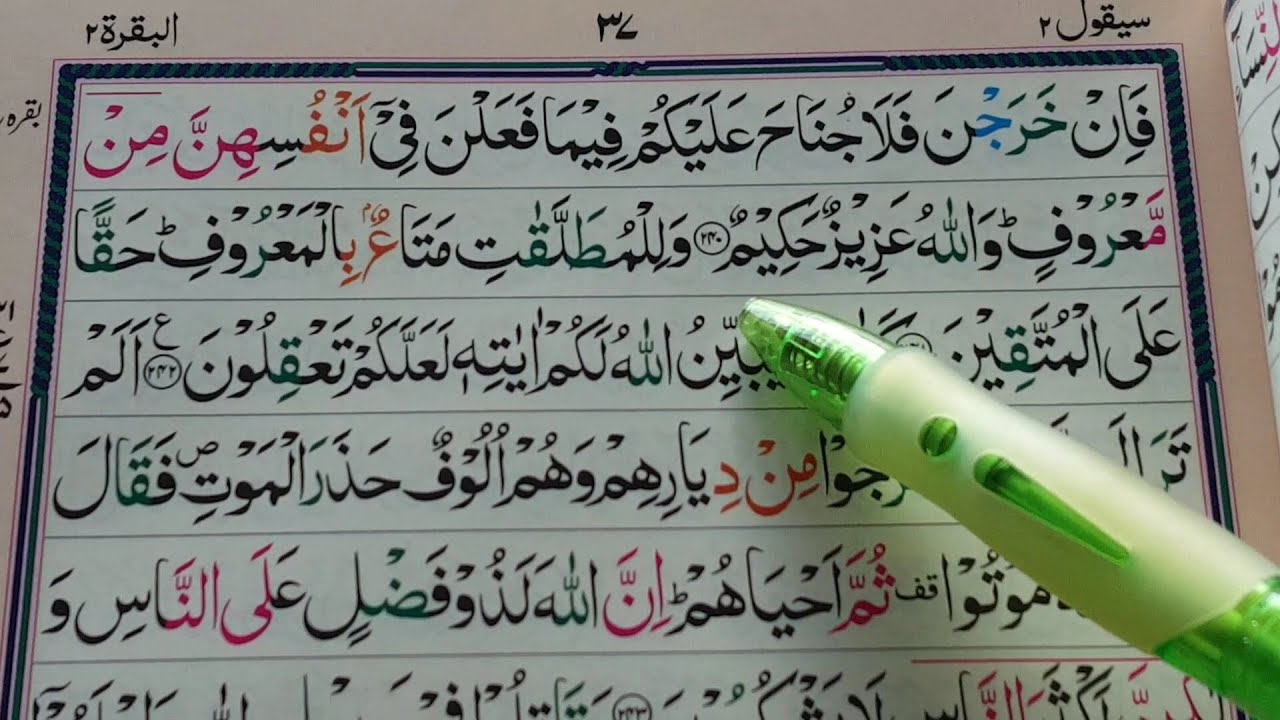 سيقول ٢ ٣٧ البقرة ٢
فَاِنْ خَرَجْنَ فَلَا جُنَاحَ عَلَيْكُمْ فِيْمَا فَعَلْنَ فِيْٓ اَنْفُسِهِنَّ مِنْ
مَّعْرُوْفٍ ؕ وَاللّٰهُ عَزِيْزٌ حَكِيْمٌ ۝۲۴۰ وَلِلْمُطَلَّقٰتِ مَتَاعٌۢ بِالْمَعْرُوْفِ ؕ حَقًّا
عَلَى الْمُتَّقِيْنَ يُبَيِّنُ اللّٰهُ لَكُمْ اٰيٰتِهٖ لَعَلَّكُمْ تَعْقِلُوْنَ ۝۲۴۲ ع اَلَمْ
تَرَ مِنْ دِيَارِهِمْ وَهُمْ اُلُوْفٌ حَذَرَ الْمَوْتِ ۪ فَقَالَ
مُوْتُوْا قف ثُمَّ اَحْيَاهُمْ ؕ اِنَّ اللّٰهَ لَذُوْ فَضْلٍ عَلَى النَّاسِ وَ
النَّاسِ لَا يَشْكُرُوْنَ ۝۲۴۳
بقره